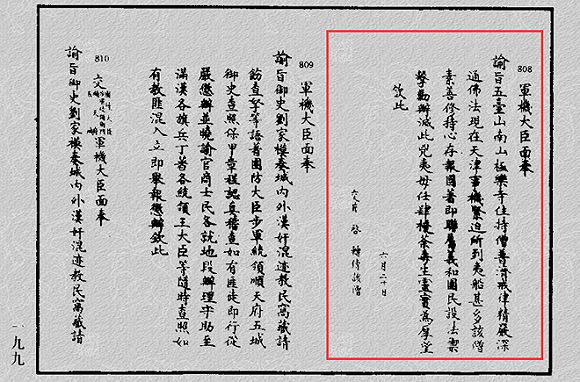 808
軍機大臣面奉
諭旨五臺山南山極樂寺住持僧普濟戒律精嚴深
通佛法現在天津事機緊迫所到夷船甚多該僧
素善修持心存報國著即聯屬義和團民設法禦
擊剿辦滅此兇夷毋任肆擾荼毒生靈實為厚望
欽此
六月二十日
交片 轉傳該僧
809
軍機大臣面奉
諭旨御史劉家模奏城內外漢奸混迹教民寓藏請
飭查拏等語著團防大臣步軍統領順天府五城
御史查照保甲章程認真稽查如有匪徒即行從
嚴懲辦並曉諭官商士民各就地段辦理守助至
滿漢各旗兵丁著各統領王大臣等隨時查照如
有教匪混入立即舉報懲辦欽此
810
交 軍機大臣面奉
諭旨御史劉家模奏城內外漢奸混迹教民寓藏請
一九九